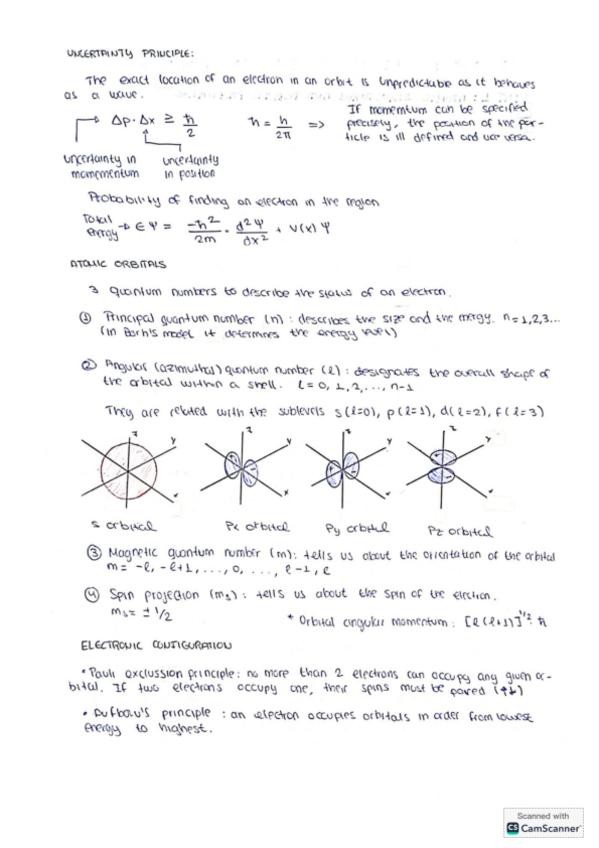 UNCERTAINTY PRINCIPLE:
The exact location of an electron in an orbit is unpredictable as it behaves
as a wave.
Δp·Δx ≥ ħ/2
ħ = h/2π =>
If momentum can be specified
precisely, the position of the par-
ticle is ill defined and vice versa.
uncertainty in
momementum
uncertainty
in position
Probability of finding an electron in the region
Total
energy → ∈ Ψ = -ħ²/2m · d²Ψ/dx² + V(x) Ψ
ATOMIC ORBITALS
3 quantum numbers to describe the status of an electron.
① Principal quantum number (n): describes the size and the energy. n=1,2,3...
(In Borh's model it determines the energy level)
② Angular (azimuthal) quantum number (ℓ): designates the overall shape of
the orbital within a shell. ℓ = 0, 1, 2, ..., n-1
They are related with the sublevels s(ℓ=0), p(ℓ=1), d(ℓ=2), f(ℓ=3)
z y x
z y x
z y x
z y x
s orbital
Px orbital
Py orbital
Pz orbital
③ Magnetic quantum number (m): tells us about the orientation of the orbital
m = -ℓ, -ℓ+1, ..., 0, ..., ℓ-1, ℓ
④ Spin projection (ms): tells us about the spin of the electron.
ms = ± 1/2
* Orbital angular momentum: [ℓ(ℓ+1)]^1/2 · ħ
ELECTRONIC CONFIGURATION
• Pauli exclussion principle: no more than 2 electrons can occupy any given or-
bital. If two electrons occupy one, their spins must be paired (↑↓)
• Aufbau's principle: an electron occupies orbitals in order from lowest
energy to highest.
Scanned with
CS CamScanner